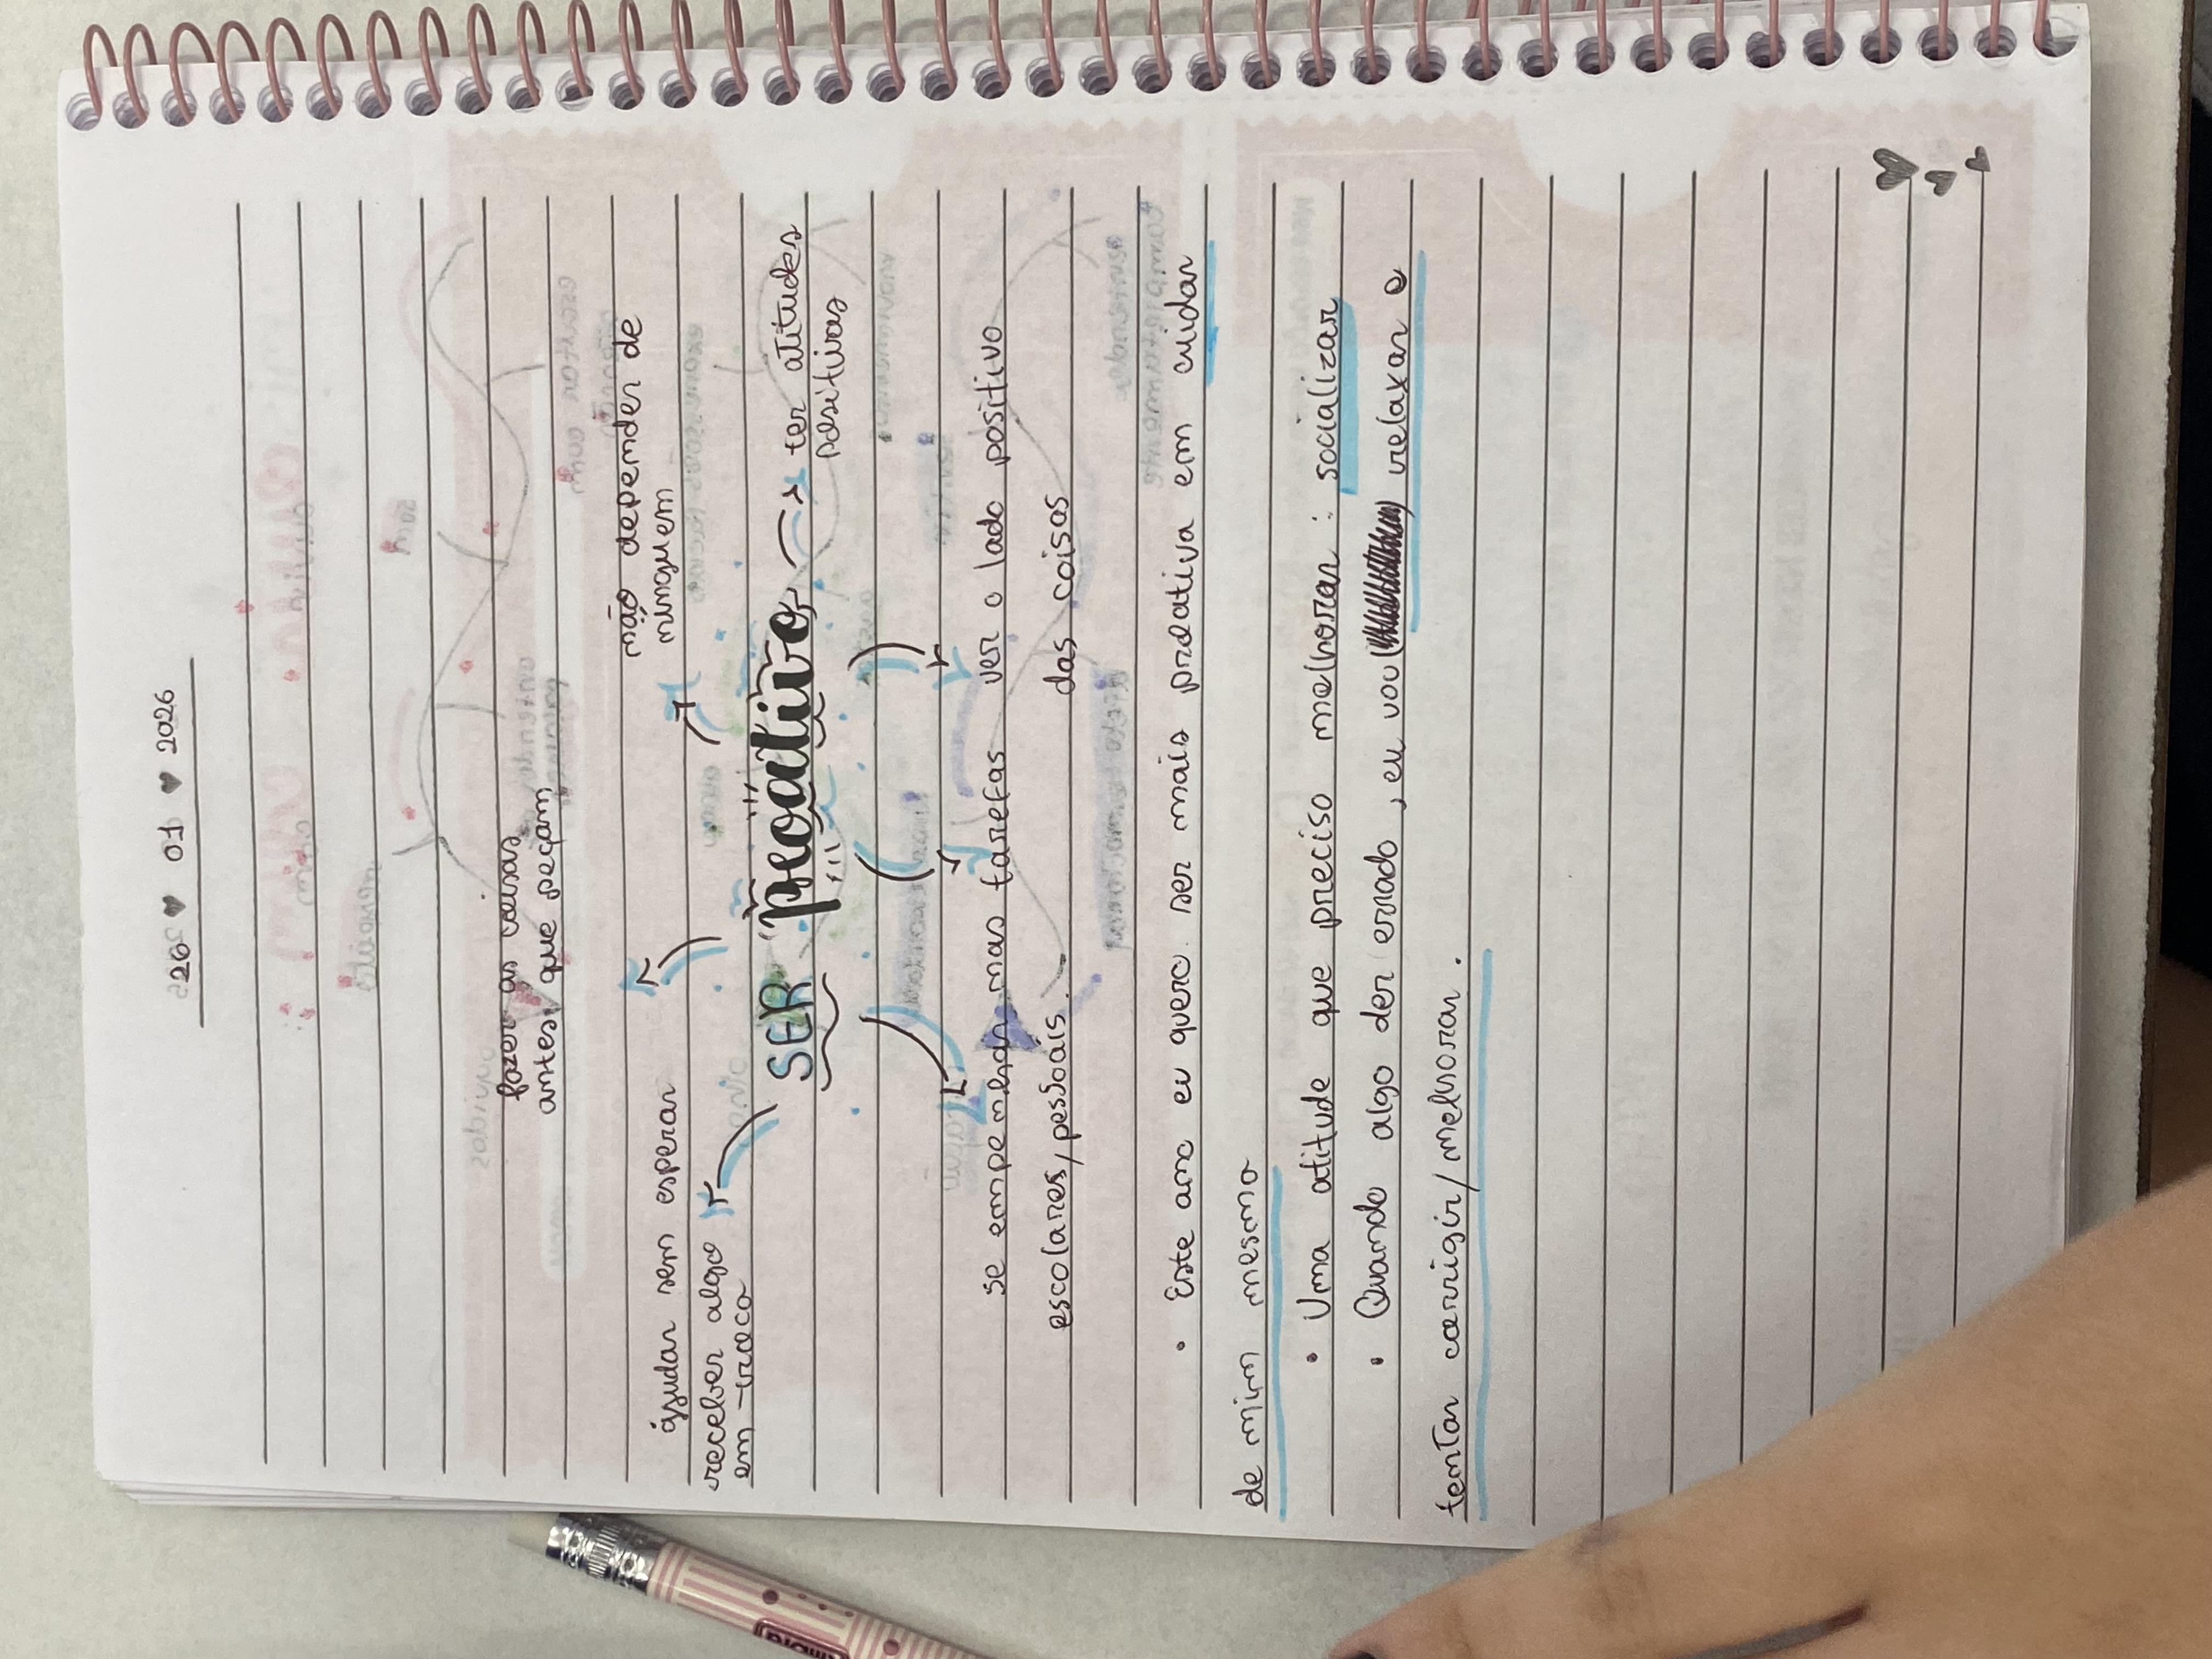 26 ♥ 01 ♥ 2026
fazer as coisas
antes que peçam
não depender de
ninguem
ajudar sem esperar
receber algo
em troca
SER "proativo"
ter atitudes
positivas
se empenhar nas tarefas
escolares/pessoais.
ver o lado positivo
das coisas
• Este ano eu quero ser mais proativa em cuidar
de mim mesmo
• Uma atitude que preciso melhorar: socializar
• Quando algo der errado, eu vou relaxar e
tentar corrigir/melhorar.